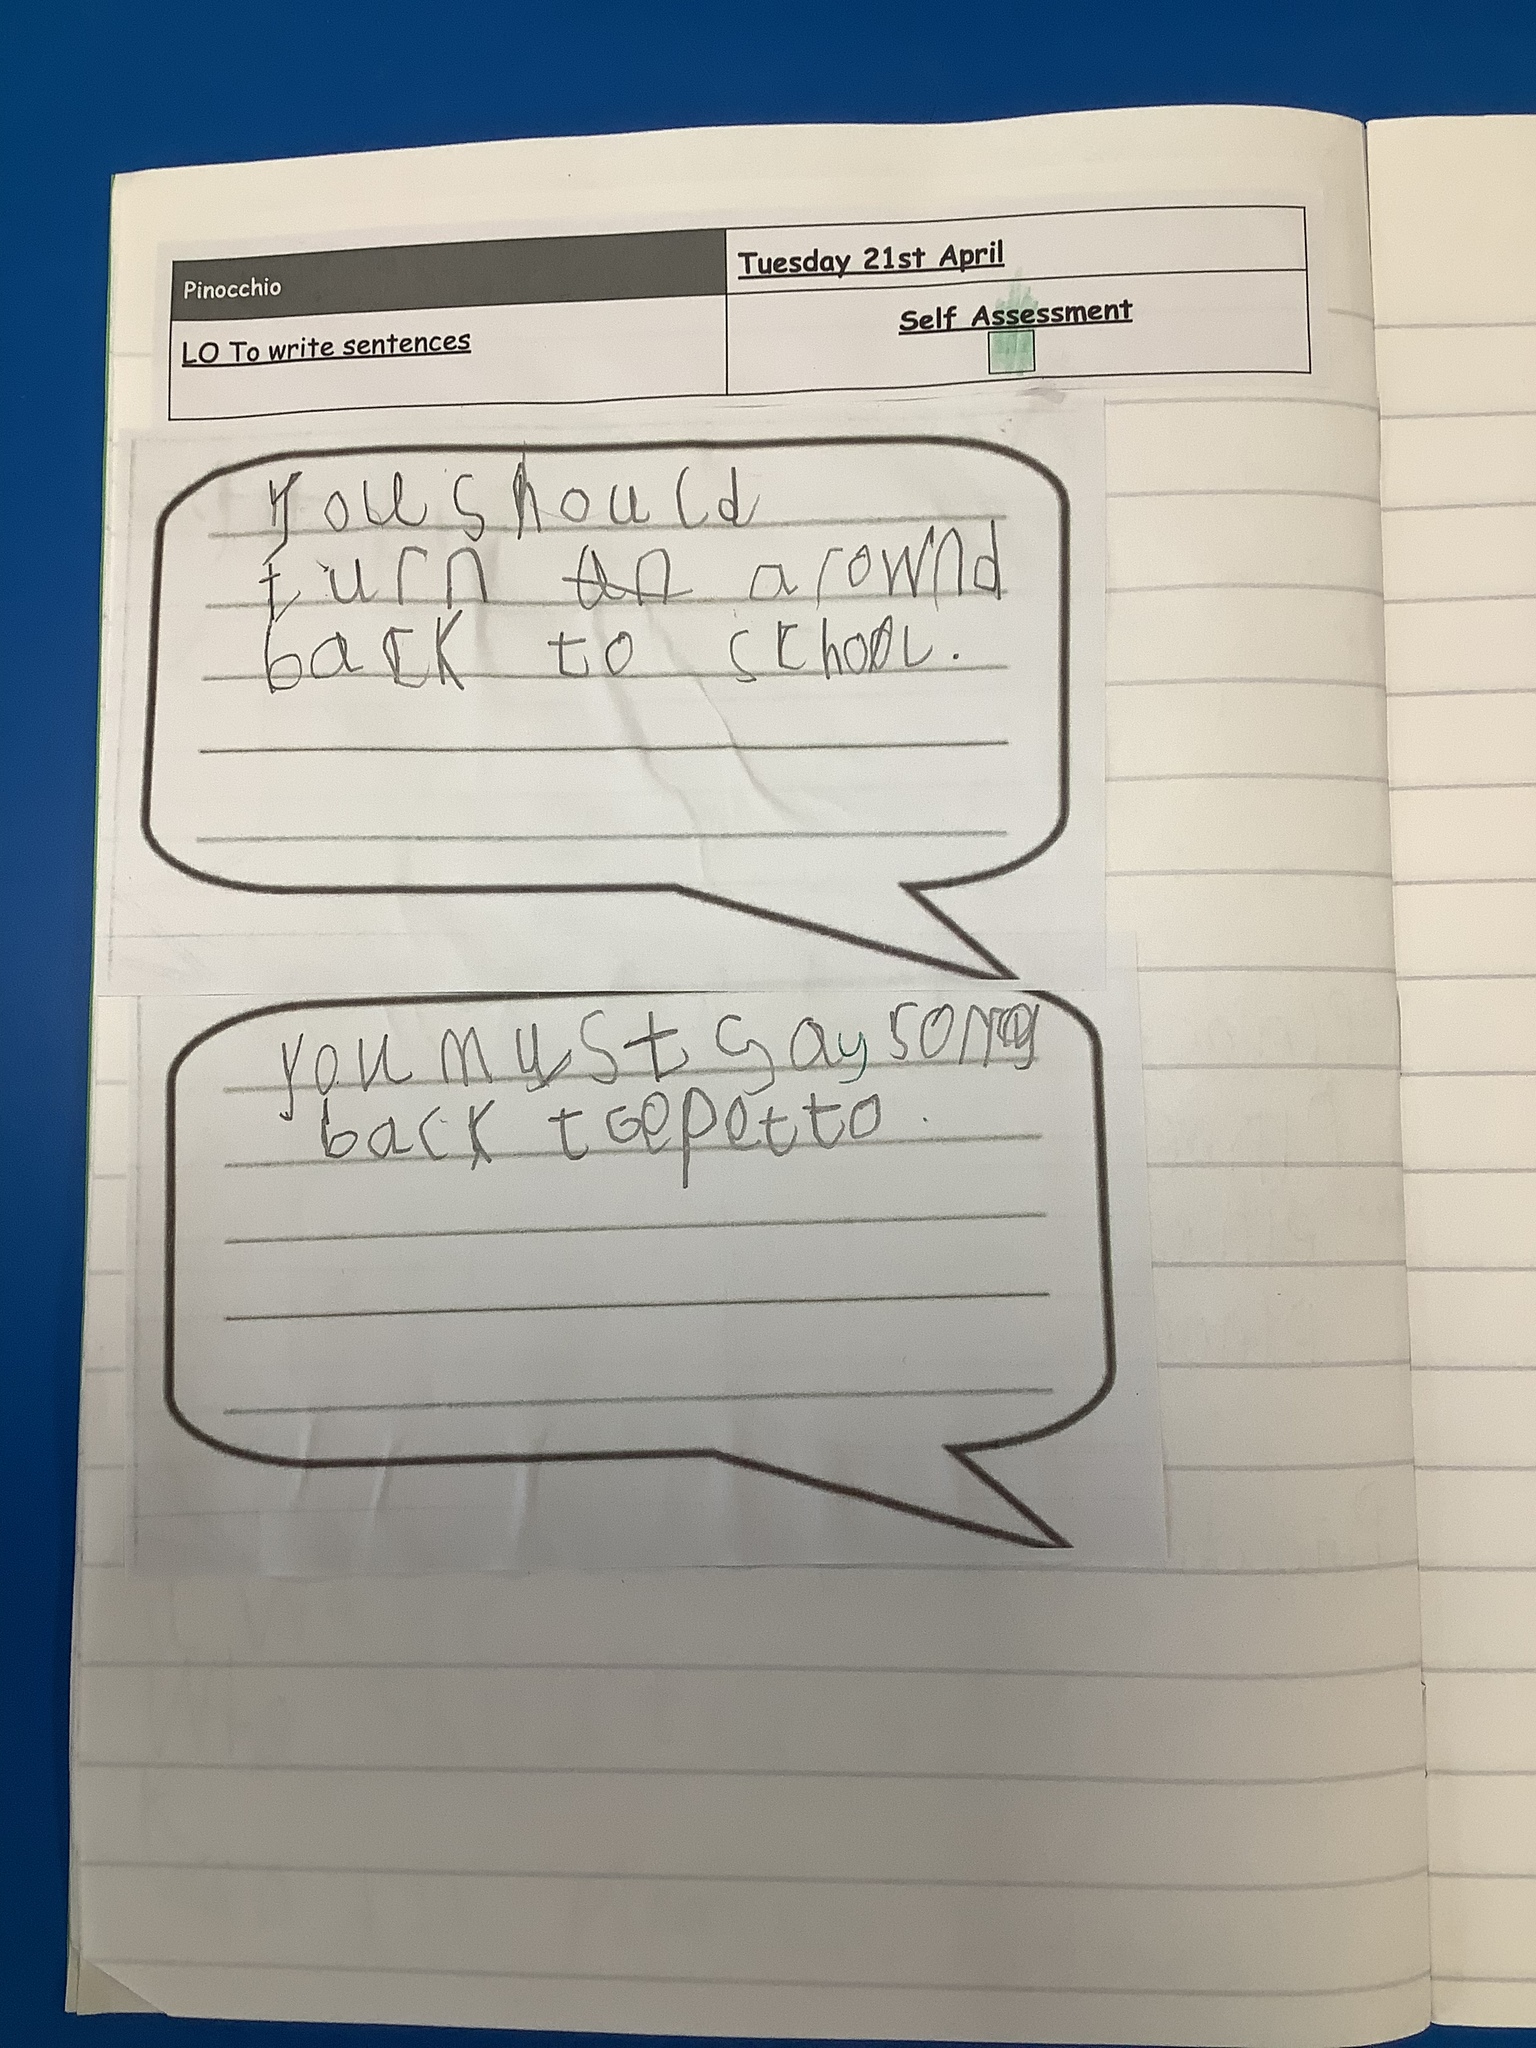 Pinocchio
Tuesday 21st April
LO To write sentences
Self Assessment
you should
turn an arownd
back to school.
you must say song
back to Gepetto.